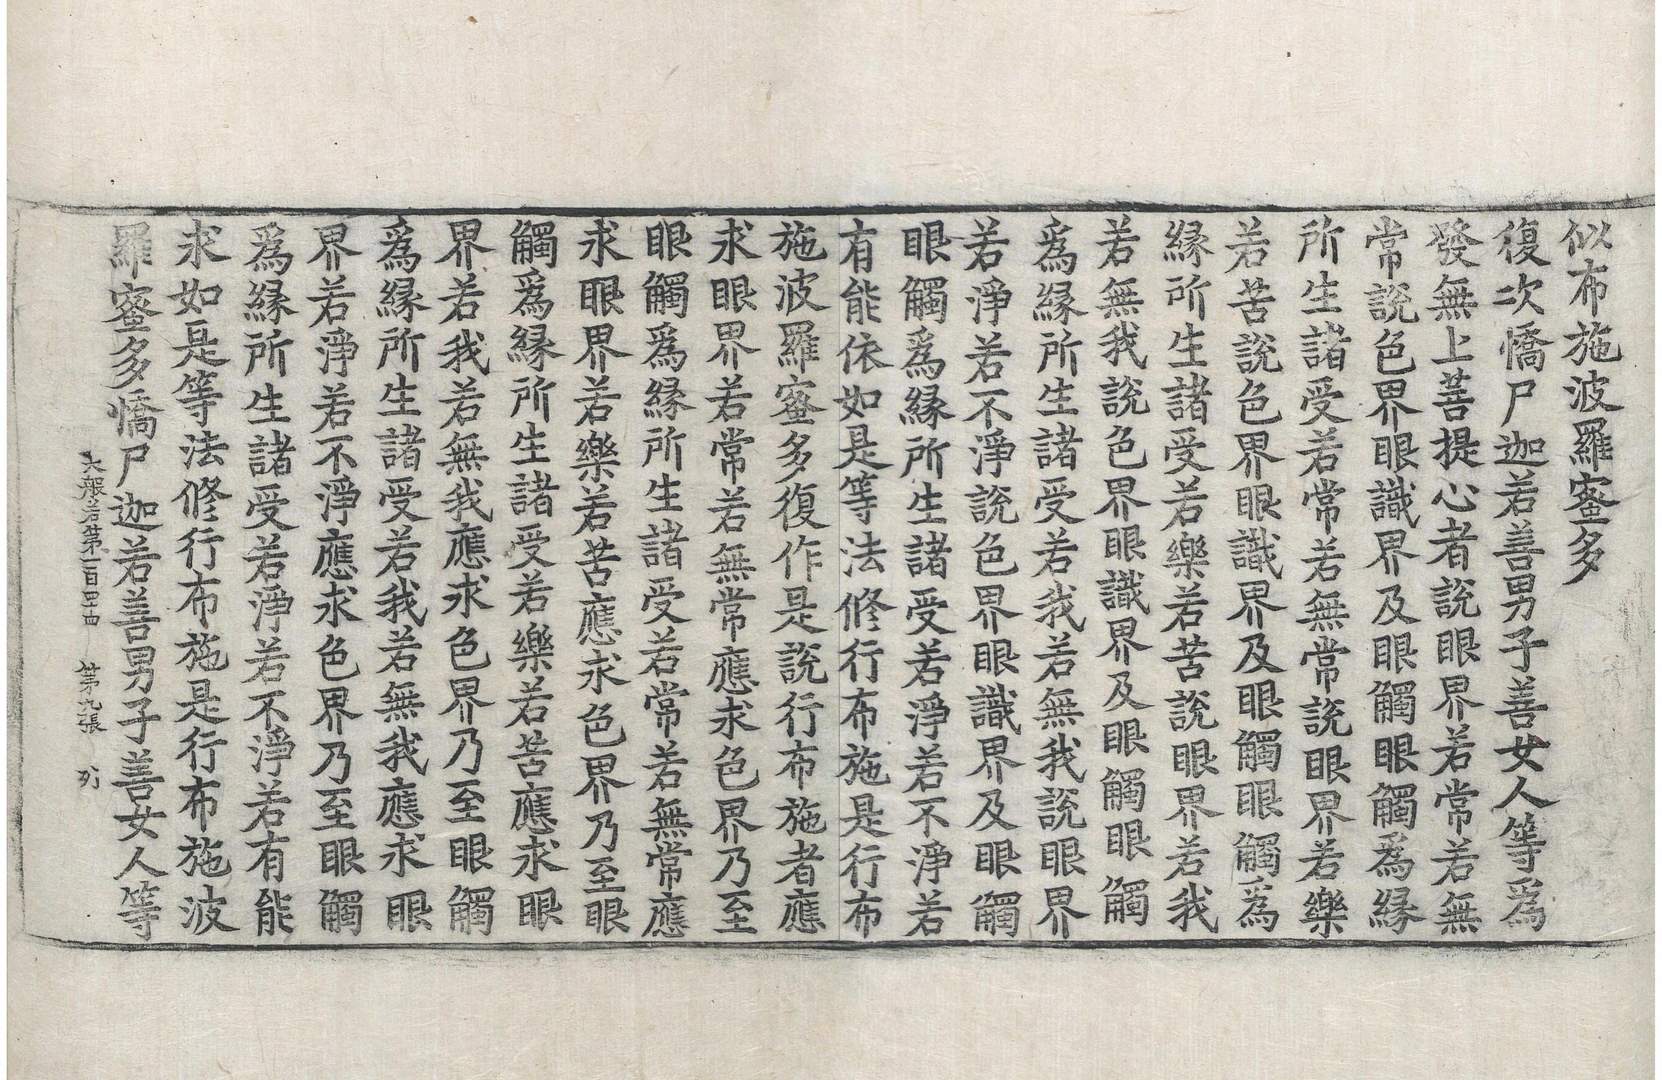 似布施波羅蜜多
復次憍尸迦若善男子善女人等爲
發無上菩提心者說眼界若常若無
常說色界眼識界及眼觸眼觸爲緣
所生諸受若常若無常說眼界若樂
若苦說色界眼識界及眼觸眼觸爲
緣所生諸受若樂若苦說眼界若我
若無我說色界眼識界及眼觸眼觸
爲緣所生諸受若我若無我說眼界
若淨若不淨說色界眼識界及眼觸
眼觸爲緣所生諸受若淨若不淨若
有能依如是等法修行布施是行布
施波羅蜜多復作是說行布施者應
求眼界若常若無常應求色界乃至
眼觸爲緣所生諸受若常若無常應
求眼界若樂若苦應求色界乃至眼
觸爲緣所生諸受若樂若苦應求眼
界若我若無我應求色界乃至眼觸
爲緣所生諸受若我若無我應求眼
界若淨若不淨應求色界乃至眼觸
爲緣所生諸受若淨若不淨若有能
求如是等法修行布施是行布施波
羅蜜多憍尸迦若善男子善女人等
大般若第一百四十四 第九張 列